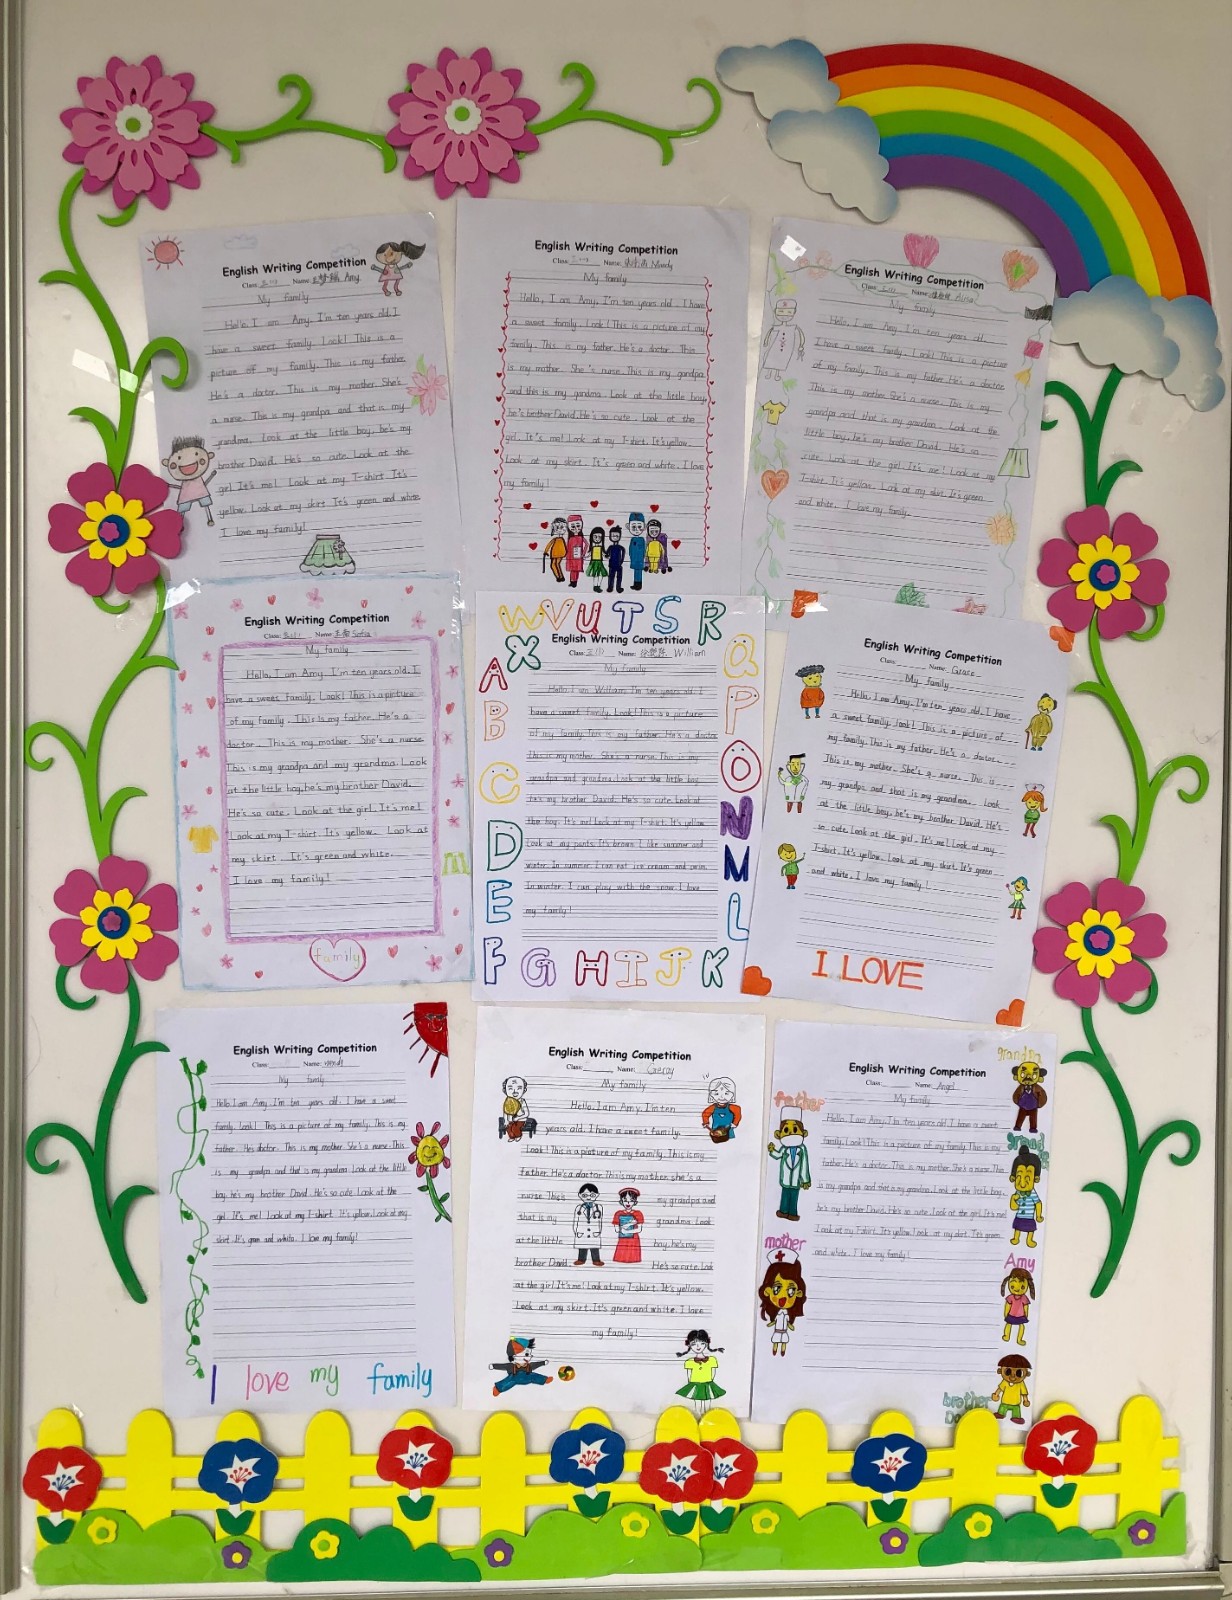 English Writing Competition
Class: 三(1) Name: Amy
My family
Hello, I am Amy. I'm ten years old. I
have a sweet family. Look! This is a
picture of my family. This is my father.
He's a doctor. This is my mother. She's
a nurse. The is my grandpa and that is my
grandma. Look at the little boy, he's my
brother David. He's so cute. Look at the
girl. It's me! Look at my T-shirt. It's
yellow. Look at my skirt. It's green and white.
I love my family!
English Writing Competition
Class: Name: Mandy
My family
Hello, I am Amy. I'm ten years old. I have
a sweet family. Look! This is a picture of my
family. This is my father. He's a doctor. This
is my mother. She's nurse. This is my grandpa
and this is my gandma. Look at the little boy,
he's brother David. He's so cute. Look at the
girl. It's me! Look at my T-shirt. It's yellow.
Look at my skirt. It's green and white. I love
my family!
English Writing Competition
Class: Name: Alisa
My family
Hello, I am Amy. I'm ten years old.
I have a sweet family. Look! This is a picture
of my family. This is my father. He's a doctor.
This is my mother. She's a nurse. This is my
grandpa and that is my grandma. Look at the
little boy, he's my brother David. He's so
cute. Look at the girl. It's me! Look at my
T-shirt. It's yellow. Look at my skirt. It's green
and white. I love my family.
English Writing Competition
Class: 三(1) Name: Sofia
My family
Hello, I am Amy. I'm ten years old. I
have a sweet family. Look! This is a picture
of my family. This is my father. He's a
doctor. This is my mother. She's a nurse
This is my grandpa and my grandma. Look
at the little boy, he's my brother David.
He's so cute. Look at the girl. It's me!
Look at my T-shirt. It's yellow. Look at
my skirt. It's green and white.
I love my family!
family
W V U T S R
X
English Writing Competition
Class: 三(1) Name: William
My family
Hello, I am William. I'm ten years old. I
have a sweet family. Look! This is a picture
of my family. This is my father. He's a doctor.
This is my mother. She's a nurse. This is my
grandpa and grandma. Look at the little boy,
he's my brother David. He's so cute. Look at
the boy. It's me! Look at my T-shirt. It's yellow.
Look at my pants. It's brown. I like summer and
winter. In summer, I can eat ice cream and swim.
In winter, I can play with the snow. I love
my family!
A
B
C
D
E
F G H I J K
L
M
N
O
P
Q
English Writing Competition
Class: Name: Grace
My family
Hello, I am Amy. I'm ten years old. I have
a sweet family. look! This is a picture of
my family. This is my father. He's a doctor.
This is my mother. She's a nurse. This is
my grandpa and that is my grandma. Look
at the little boy, he's my brother David. He's
so cute. Look at the girl. It's me! Look at my
T-shirt. It's yellow. Look at my skirt. It's green
and white. I love my family!
I LOVE
English Writing Competition
Class: Name:
My family
Hello, I am Amy. I'm ten years old. I have a sweet
family. Look! This is a picture of my family. This is my
father. He's doctor. This is my mother. She's a nurse. This
is my grandpa and that is my grandma. Look at the little
boy, he's my brother David. He's so cute. Look at the
girl. It's me! Look at my T-shirt. It's yellow. Look at my
skirt. It's green and white. I love my family!
I love my family
English Writing Competition
Class: Name:
My family
Hello, I am Amy. I'm ten
years old. I have a sweet family.
Look! This is a picture of my family. This is my
father. He's a doctor. This is my mother. she's a
nurse. This my grandpa and
that is my grandma. Look
at the little boy, he's my
brother David. He's so cute. Look
at the girl. It's me! Look at my T-shirt. It's yellow.
Look at my skirt. It's green and white. I love
my family!
English Writing Competition
Class: Name: Angel
My family
Hello, I am Amy. I'm ten years old. I have a sweet
family. Look! This is a picture of my family. This is my
father. He's a doctor. This is my mother. She's a nurse. This
is my grandpa and that is my grandma. Look at the little boy,
he's my brother David. He's so cute. Look at the girl. It's me!
Look at my T-shirt. It's yellow. Look at my skirt. It's green
and white. I love my family!
father
mother
grandpa
grand
Amy
brother